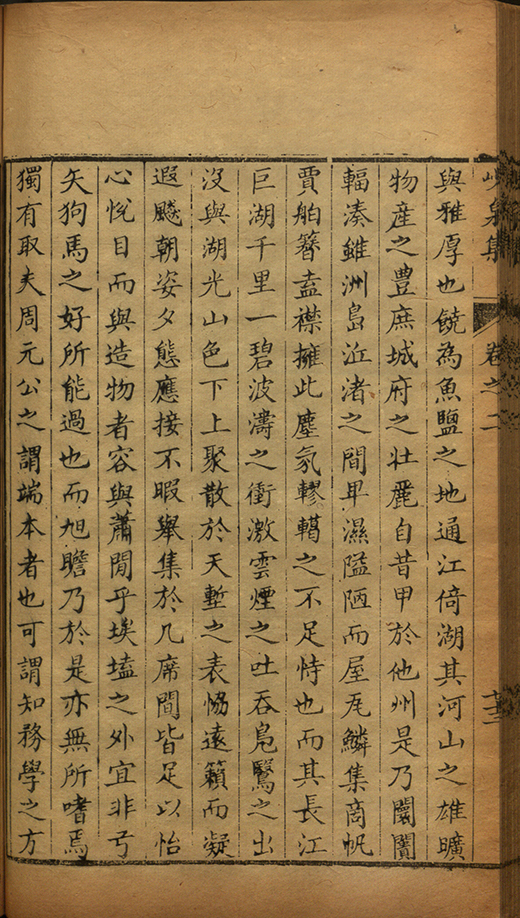 峴泉集 卷之二 十三
與雅厚也饒為魚鹽之地通江倚湖其河山之雄曠
物產之豊庶城府之壯麗自昔甲於他州是乃闤闠
輻湊雖洲島沚渚之間卑濕隘陋而屋瓦鱗集商帆
賈舶簪盍襟擁此塵氛轇轕之不足恃也而其長江
巨湖千里一碧波濤之衝激雲煙之吐吞鳧鷖之出
沒與湖光山色下上聚散於天塹之表恊遠籟而凝
遐飈朝姿夕態應接不暇舉集於几席間皆足以怡
心恱目而與造物者容與蕭閒乎埃壒之外宜非弓
矢狗馬之好所能過也而旭瞻乃於是亦無所嗜焉
獨有取夫周元公之謂端本者也可謂知務學之方